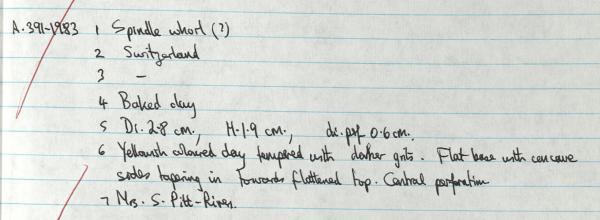 A.391-1983 1 Spindle whorl (?)
2 Switzerland
3 –
4 Baked clay
5 Di. 2.8 cm., H. 1.9 cm., di. perf 0.6 cm.
6 Yellowish coloured clay tempered with darker grits. Flat base with concave
sides tapering in towards flattened top. Central perforation
7 Mrs. S. Pitt-Rivers.